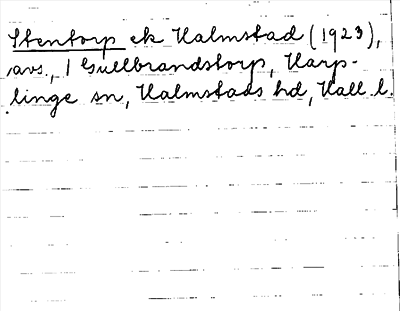 Stentorp ek Halmstad (1923),
avs., 1 Gullbrandstorp, Harp-
linge sn, Halmstads hd, Hall l.